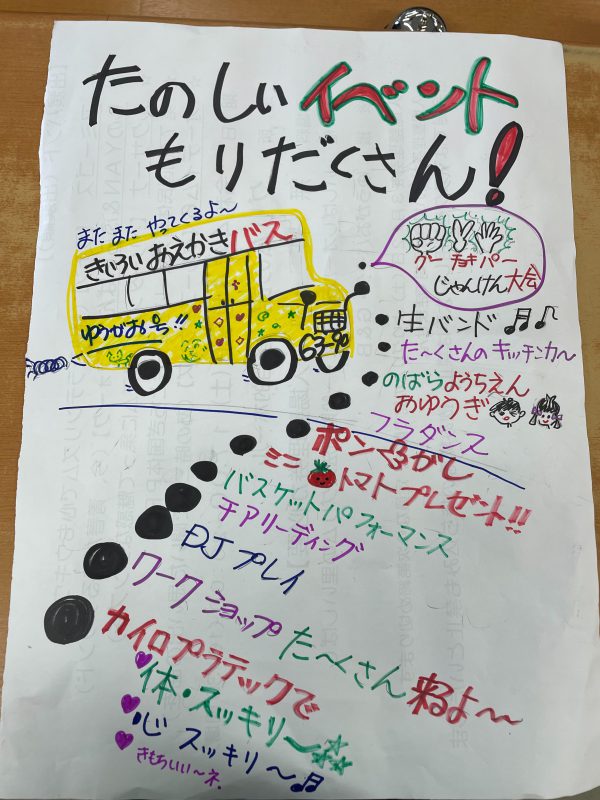 たのしい イベント
もりだくさん!
またまた やってくるよ〜
きいろい おえかきバス
ゆうがおーち!!
63-90
グー チョキ パー
じゃんけん大会
生バンド
た〜くさんの キッチンカ〜
のばらようちえん
おゆうぎ
フラダンス
ポンがし
ミニ トマトプレゼント!!
バスケットパフォーマンス
チアリーディング
DJ プレイ
ワークショップ た〜くさん 来るよ〜
カイロプラテックで
体・スッキリ〜
心 スッキリ〜
きもちいい〜ネ.